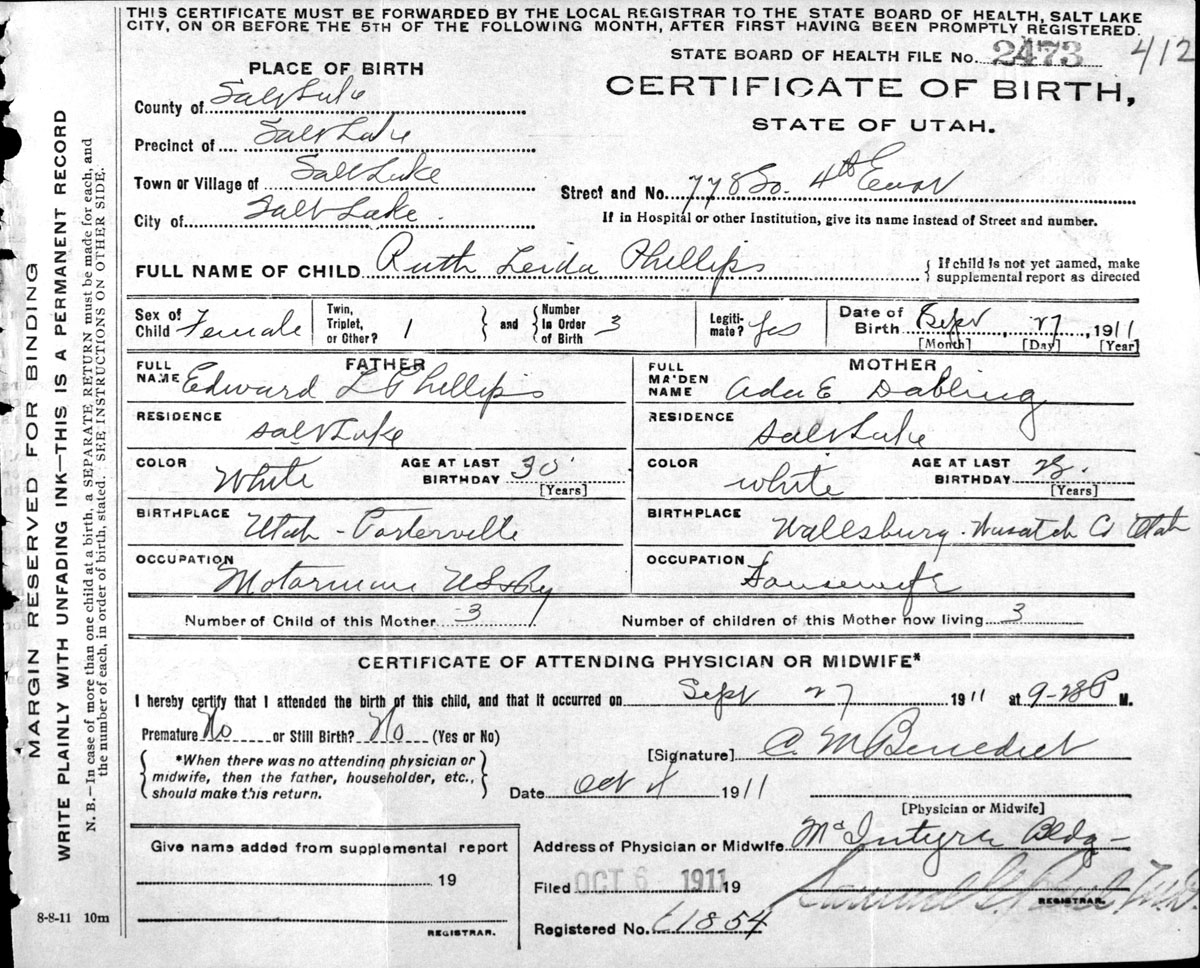 THIS CERTIFICATE MUST BE FORWARDED BY THE LOCAL REGISTRAR TO THE STATE BOARD OF HEALTH, SALT LAKE
CITY, ON OR BEFORE THE 5TH OF THE FOLLOWING MONTH, AFTER FIRST HAVING BEEN PROMPTLY REGISTERED.
STATE BOARD OF HEALTH FILE No. 2473 412
CERTIFICATE OF BIRTH,
STATE OF UTAH.
PLACE OF BIRTH
County of Salt Lake
Precinct of Salt Lake
Town or Village of Salt Lake
City of Salt Lake
Street and No. 778 So. 4th East
If in Hospital or other Institution, give its name instead of Street and number.
FULL NAME OF CHILD Ruth Leida Phillips
If child is not yet named, make
supplemental report as directed
Sex of Child Female
Twin, Triplet, or Other? 1 and Number In Order of Birth 3
Legiti-mate? Yes
Date of Birth Sept 27 1911
[Month] [Day] [Year]
FATHER
FULL NAME Edward L Phillips
RESIDENCE Salt Lake
COLOR White AGE AT LAST BIRTHDAY 30 [Years]
BIRTHPLACE Utah - Porterville
OCCUPATION Motorman
MOTHER
FULL MAIDEN NAME Ada E. Dabling
RESIDENCE Salt Lake
COLOR White AGE AT LAST BIRTHDAY [Years]
BIRTHPLACE Wallsburg - Wasatch Co Utah
OCCUPATION Housewife
Number of Child of this Mother 3
Number of children of this Mother now living 3
CERTIFICATE OF ATTENDING PHYSICIAN OR MIDWIFE*
I hereby certify that I attended the birth of this child, and that it occurred on Sept 27 1911 at 9-28 P M.
Premature No or Still Birth? No (Yes or No)
*When there was no attending physician or
midwife, then the father, householder, etc.,
should make this return.
[Signature] C. M Benedict
Date Oct 4 1911
[Physician or Midwife]
Give name added from supplemental report
19
REGISTRAR.
Address of Physician or Midwife McIntyre Bldg -
Filed OCT 6 1911 19
REGISTRAR.
Registered No. 1854
8-8-11 10m
MARGIN RESERVED FOR BINDING
WRITE PLAINLY WITH UNFADING INK—THIS IS A PERMANENT RECORD
N. B.—In case of more than one child at a birth, a SEPARATE RETURN must be made for each, and
the number of each, in order of birth, stated. SEE INSTRUCTIONS ON OTHER SIDE.